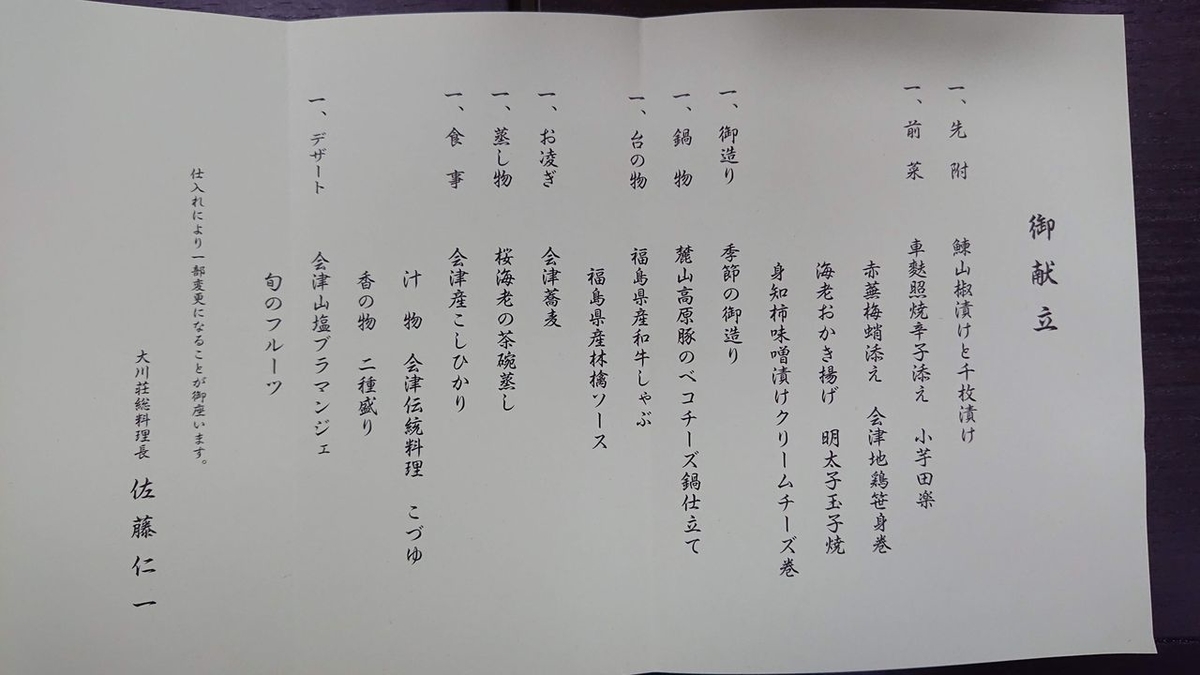 御献立
一、先附 鰊山椒漬けと千枚漬け
一、前菜 車麩照焼辛子添え 小芋田楽
赤蕪梅蛸添え 会津地鶏笹身巻
海老おかき揚げ 明太子玉子焼
身知柿味噌漬けクリームチーズ巻
一、御造り 季節の御造り
一、鍋物 麓山高原豚のべコチーズ鍋仕立て
一、台の物 福島県産和牛しゃぶ
福島県産林檎ソース
一、お凌ぎ 会津蕎麦
一、蒸し物 桜海老の茶碗蒸し
一、食事 会津産こしひかり
汁物 会津伝統料理 こづゆ
香の物 二種盛り
一、デザート 会津山塩ブラマンジェ
旬のフルーツ
仕入れにより一部変更になることが御座います。
大川荘総料理長 佐藤仁一